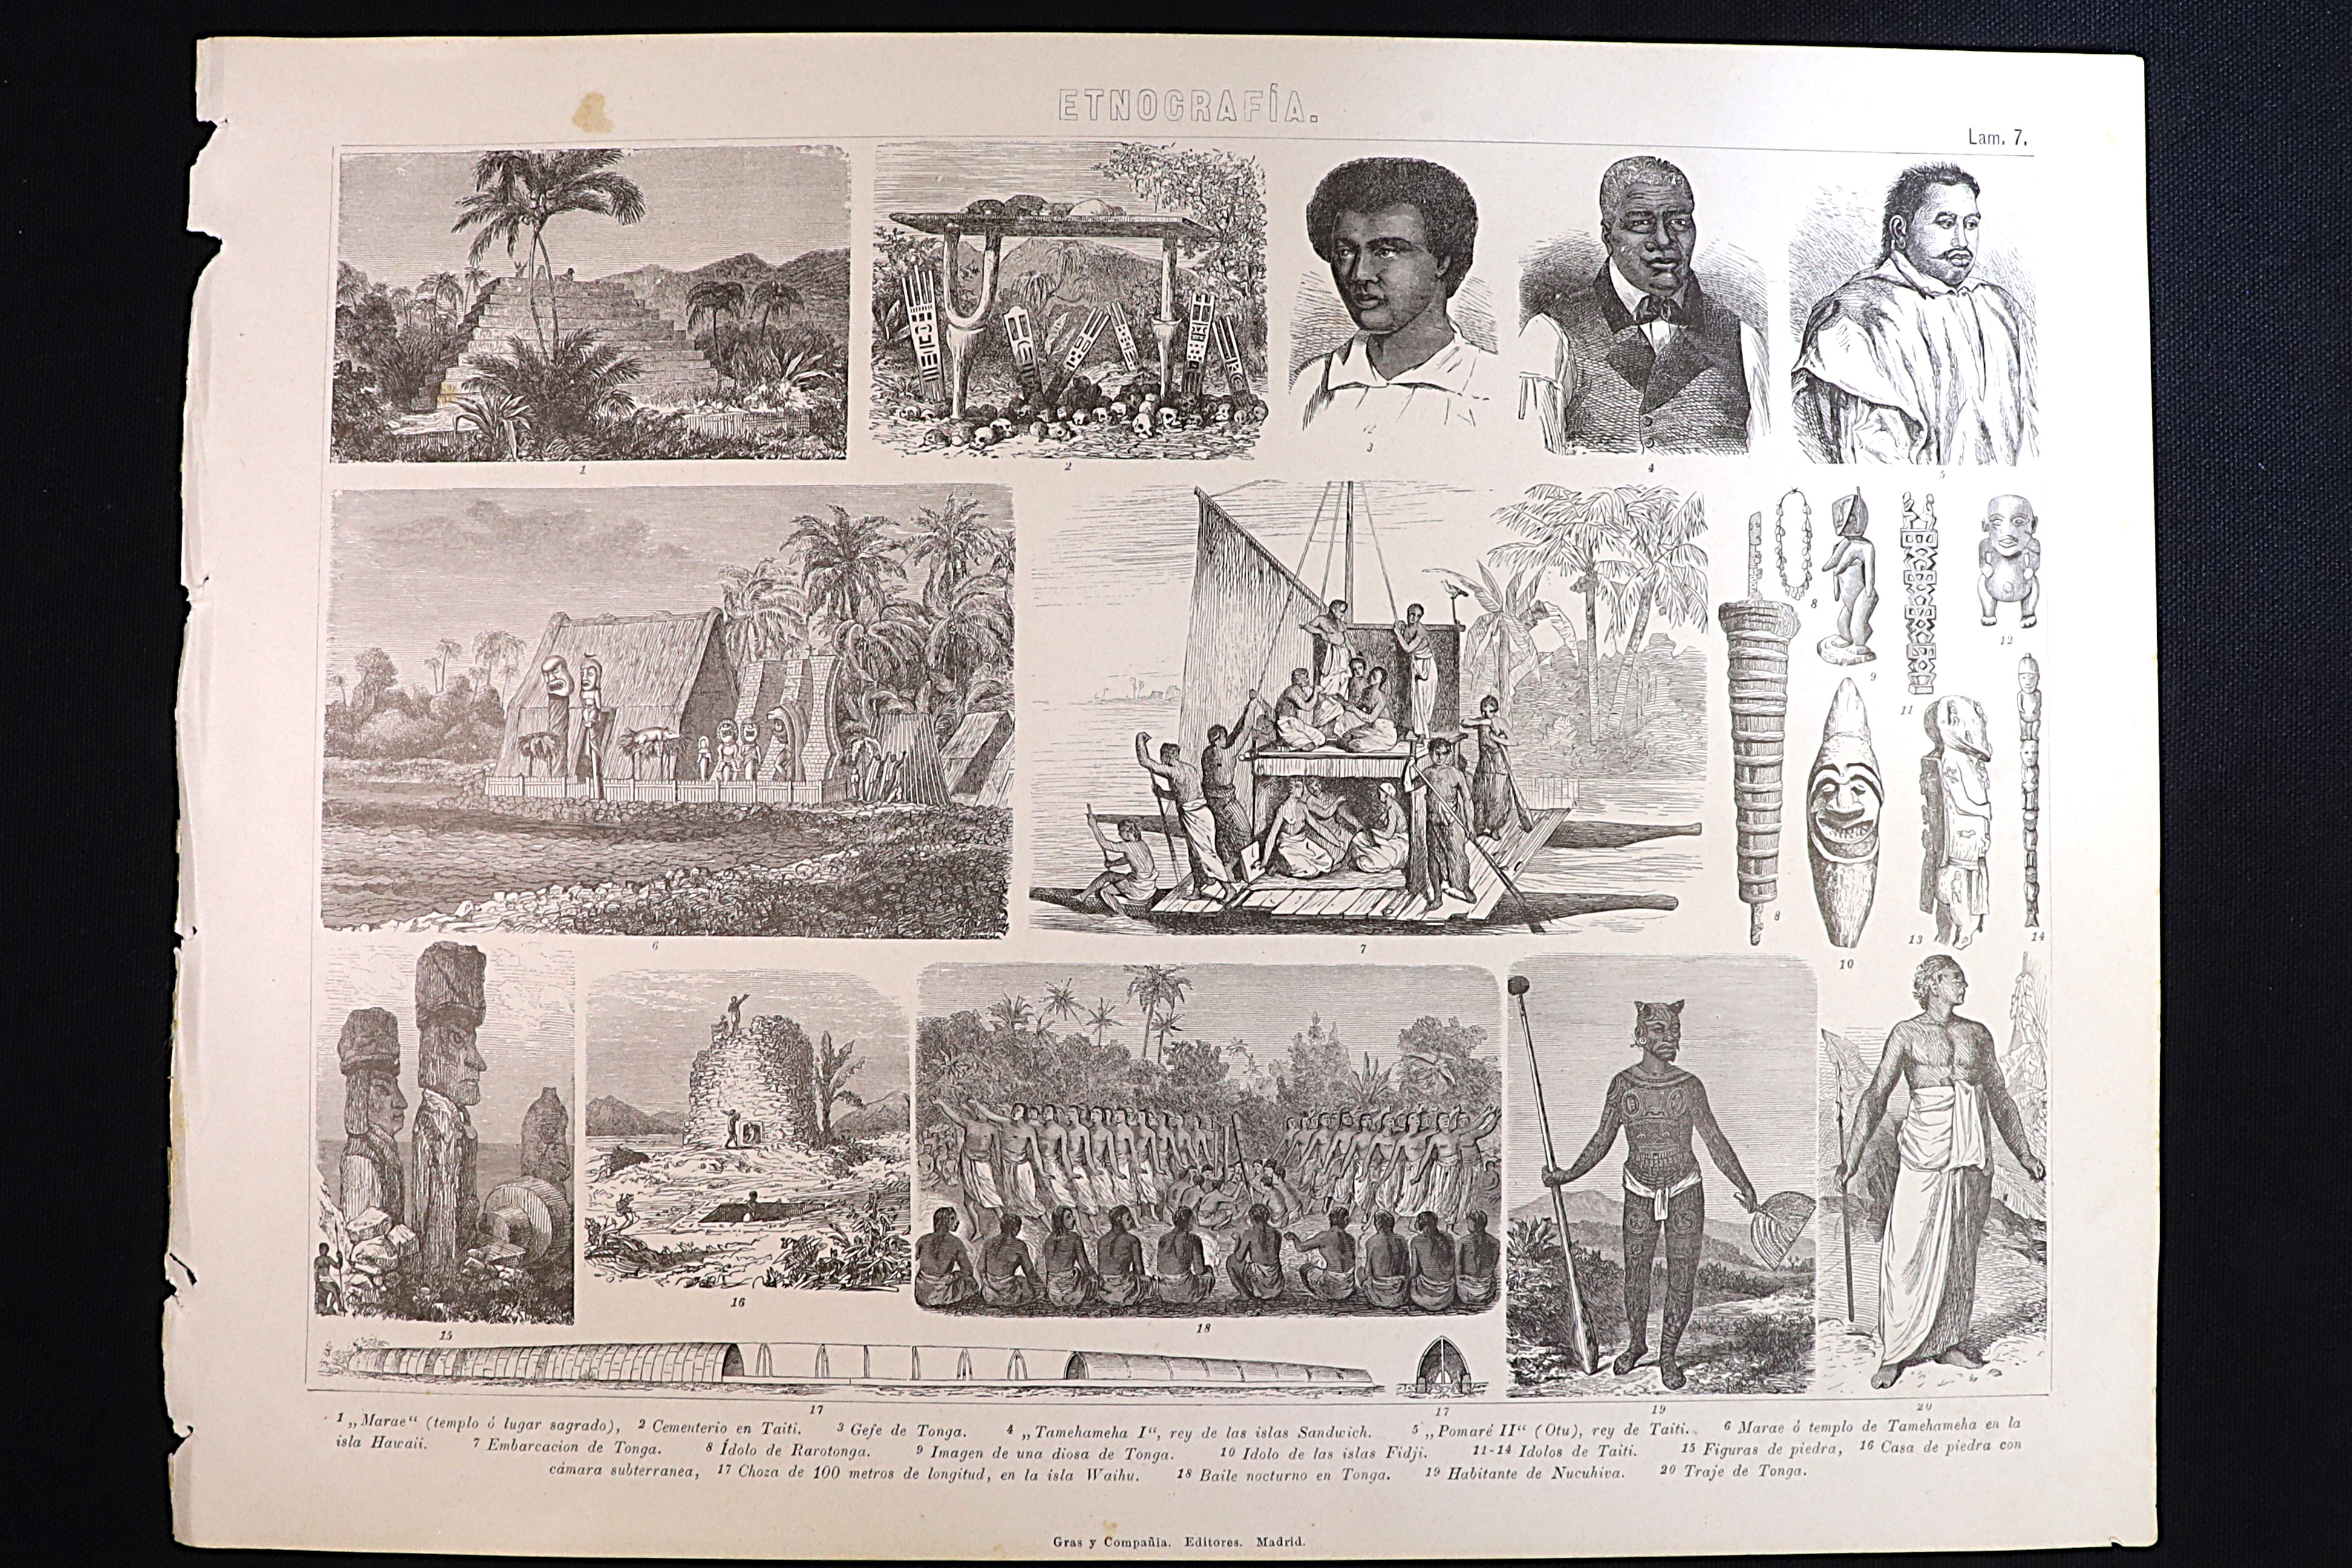 ETNOGRAFÍA.
Lam. 7.
1
2
3
4
5
6
7
8
8
9
10
11
12
13
14
15
16
17
17
18
19
20
1 „Marae“ (templo ó lugar sagrado), 2 Cementerio en Taiti. 3 Gefe de Tonga. 4 „Tamehameha I“, rey de las islas Sandwich. 5 „Pomaré II“ (Otu), rey de Taiti. 6 Marae ó templo de Tamehameha en la
isla Hawaii. 7 Embarcacion de Tonga. 8 Ídolo de Rarotonga. 9 Imagen de una diosa de Tonga. 10 Idolo de las islas Fidji. 11-14 Idolos de Taiti. 15 Figuras de piedra, 16 Casa de piedra con
cámara subterranea, 17 Choza de 100 metros de longitud, en la isla Waihu. 18 Baile nocturno en Tonga. 19 Habitante de Nucuhiva. 20 Traje de Tonga.
Gras y Compañia. Editores. Madrid.